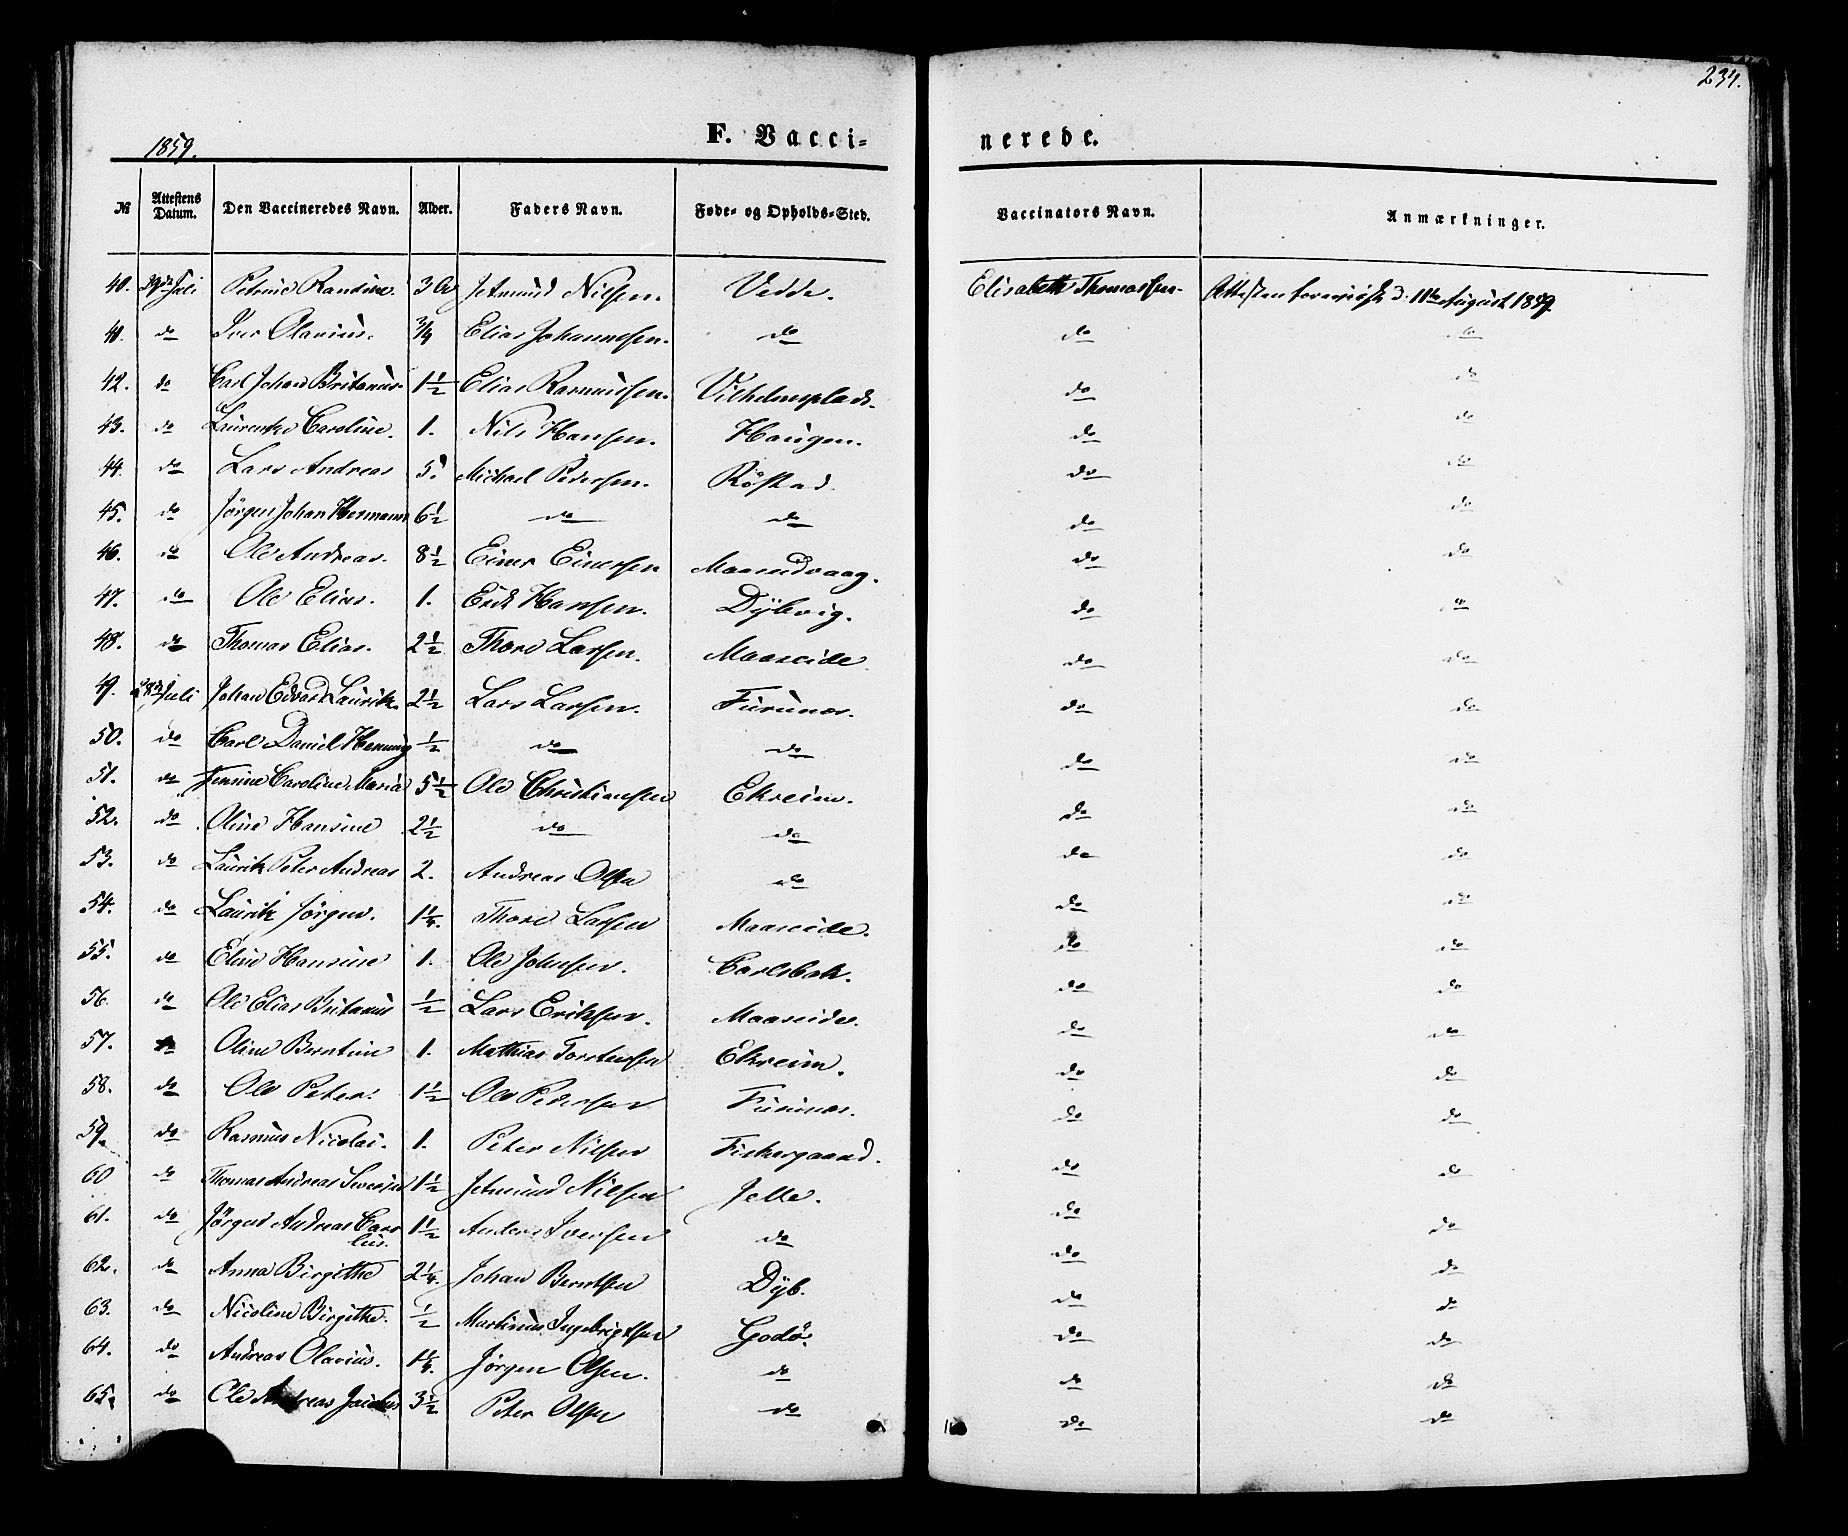 234.
1859. F. Vacci= nerede.
№ Attestens Datum. Den Vaccineredes Navn. Alder. Faders Navn. Føde- og Opholds-Sted. Vaccinators Navn. Anmærkninger.
40. 29de Juli Petrine Randine. 3 Jetmund Nilsen. Vedde. Elisabeth Thomassen. Attesten 11te August 1859.
41. do Iver Olavius. 3/4 Elias Johannesen. do do do
42. do Carl Johan Britanus 1 1/2 Elias Rasmussen. Vilhelmsplads. do do
43. do Laurentse Caroline. 1. Nils Hansen. Haugen. do do
44. do Lars Andreas 5. Michael Pedersen. Röstad. do do
45. do Jörgen Johan Hermann 6 1/2 do do do do
46. do Ole Andreas. 8 1/2 Einer Einersen Maasudvaag. do do
47. do Ole Elias. 1. Erik Hansen. Dybvig. do do
48. do Thomas Elias. 2 1/2 Thore Larsen. Maaseide do do
49. 28de Juli Johan Edvard Laurits. 2 1/2 Lars Larsen. Furunes. do do
50. do Carl Daniel Henning 1/2 do do do do
51. do Jensine Caroline Maria 5 1/2 Ole Christiansen Ekreim. do do
52. do Oline Hansine 2 1/2 do do do do
53. do Laurits Peter Andreas 2. Andreas Olsen do do do
54. do Laurits Jörgen. 1 1/4. Thore Larsen Maaseide. do do
55. do Eline Hansine 1. Ole Johnsen. Carlsbak. do do
56. do Ole Elias Britanus 1/2 Lars Eriksen. Maaseide. do do
57. do Oline Berntine 1. Mathias Torstensen Ekreim. do do
58. do Ole Peter. 1 1/2 Ole Pedersen Furunes. do do
59. do Rasmus Nicolai. 1. Peter Nilsen Fiskergaard. do do
60 do Thomas Andreas Severin 1 1/2 Jetmund Nilsen Jelle. do do
61. do Jörgen Andreas Car-
lus. 1 1/2 Anders Iversen do do do
62. do Anna Birgithe 2 1/4. Johan Berntsen Dyb. do do
63. do Nicoline Birgithe. 1/2 Martinus Ingebrigtsen Godö. do do
64. do Andreas Olavius. 1 1/4. Jörgen Olsen. do do do
65. do Ole Andreas 3 1/2 Peter Olsen do do do